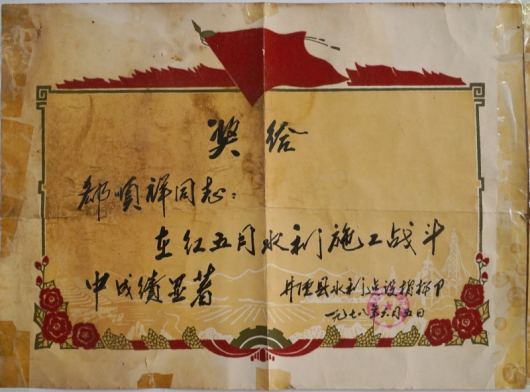 奖给
郝顺祥同志：
在红五月水利施工战斗
中成绩显著
井陉县水利建设指挥部
一九七八年六月五日